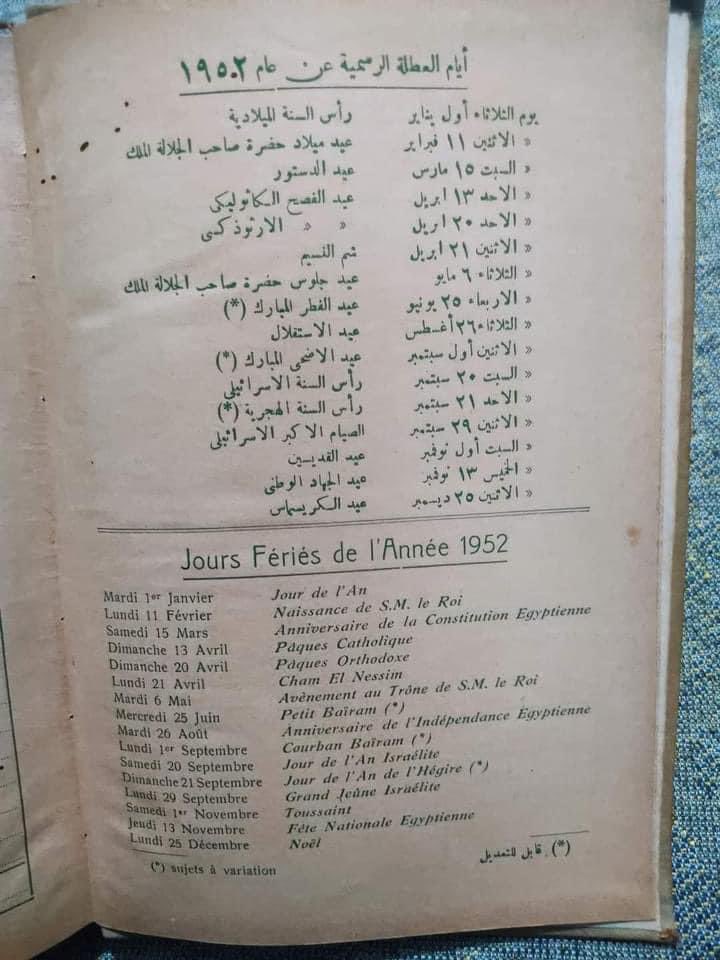 أيام العطلة الرسمية عن عام ١٩٥٢
يوم الثلاثاء أول يناير رأس السنة الميلادية
» الاثنين ١١ فبراير عيد ميلاد حضرة صاحب الجلالة الملك
» السبت ١٥ مارس عيد الدستور
» الاحد ١٣ ابريل عيد الفصح الكاثوليكى
» الاحد ٢٠ ابريل » » الارثوذكسى
» الاثنين ٢١ ابريل شم النسيم
» الثلاثاء ٦ مايو عيد جلوس حضرة صاحب الجلالة الملك
» الاربعاء ٢٥ يونيو عيد الفطر المبارك (*)
» الثلاثاء ٢٦ أغسطس عيد الاستقلال
» الاثنين أول سبتمبر عيد الاضحى المبارك (*)
» السبت ٢٠ سبتمبر رأس السنة الاسرائيلى
» الاحد ٢١ سبتمبر رأس السنة الهجرية (*)
» الاثنين ٢٩ سبتمبر الصيام الاكبر الاسرائيلى
» السبت أول نوفمبر عيد القديسين
» الخميس ١٣ نوفمبر عيد الجهاد الوطنى
» الاثنين ٢٥ ديسمبر عيد الكريسماس
Jours Fériés de l'Année 1952
Mardi 1er Janvier Jour de l'An
Lundi 11 Février Naissance de S.M. le Roi
Samedi 15 Mars Anniversaire de la Constitution Egyptienne
Dimanche 13 Avril Pâques Catholique
Dimanche 20 Avril Pâques Orthodoxe
Lundi 21 Avril Cham El Nessim
Mardi 6 Mai Avènement au Trône de S.M. le Roi
Mercredi 25 Juin Petit Baïram (*)
Mardi 26 Août Anniversaire de l'Indépendance Egyptienne
Lundi 1er Septembre Courban Baïram (*)
Samedi 20 Septembre Jour de l'An Israélite
Dimanche 21 Septembre Jour de l'An de l'Hégire (*)
Lundi 29 Septembre Grand Jeûne Israélite
Samedi 1er Novembre Toussaint
Jeudi 13 Novembre Fête Nationale Egyptienne
Lundi 25 Décembre Noël
(*) sujets à variation
(*) قابل للتعديل